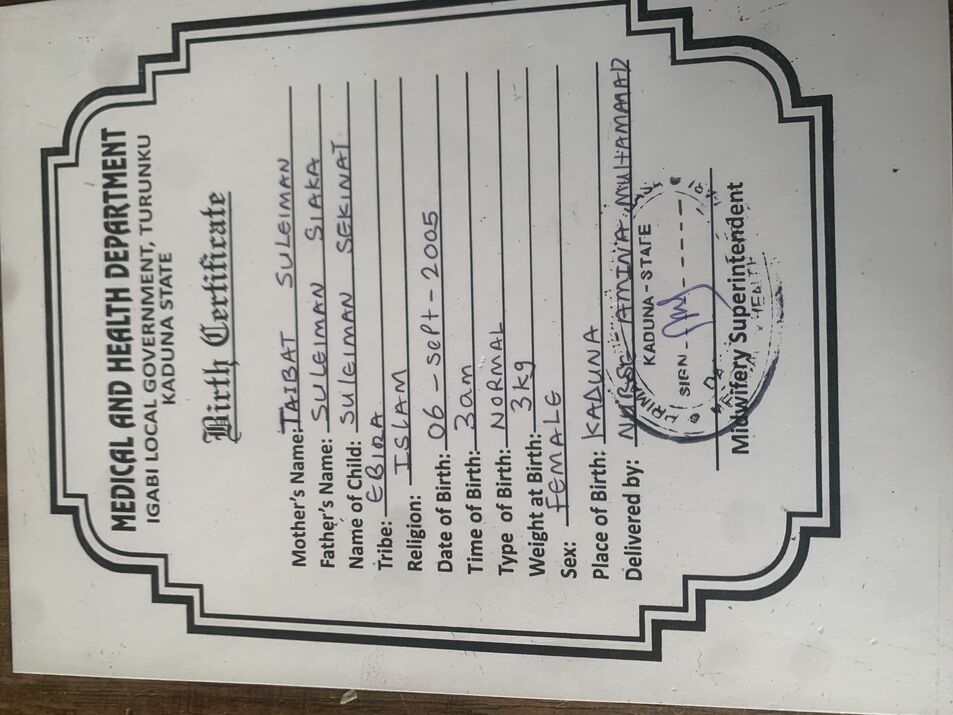 MEDICAL AND HEALTH DEPARTMENT
IGABI LOCAL GOVERNMENT, TURUNKU
KADUNA STATE
Birth Certificate
Mother's Name: TAIBAT SULEIMAN
Father's Name: SULEIMAN SIAKA
Name of Child: SULEIMAN SEKINAT
Tribe: EBIRA
Religion: ISLAM
Date of Birth: 06-Sept-2005
Time of Birth: 3am
Type of Birth: NORMAL
Weight at Birth: 3kg
Sex: FEMALE
Place of Birth: KADUNA
Delivered by: NURSE AMINA MUHAMMAD
KADUNA - STATE
SIGN
Midwifery Superintendent